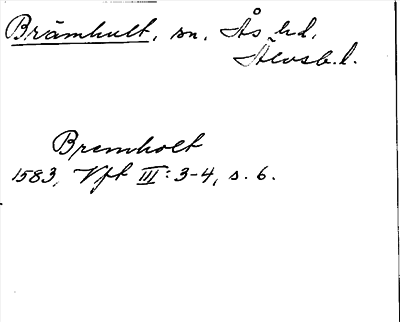 Brämhult, sn, Ås hd,
Älvsb.l.
Bremholt
1583, Vft III: 3-4, s. 6.